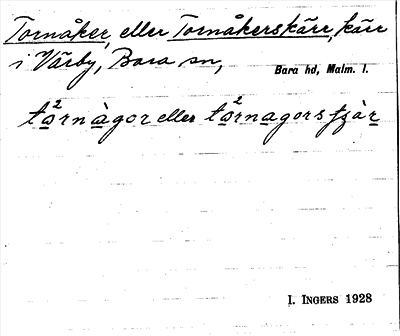 Tornåker, eller Tornåkerskärr, kärr
i Värby, Bara sn,
Bara hd, Malm. l.
tơ²rnàgor eller tơ²rnagorsʃʒàr
I. INGERS 1928